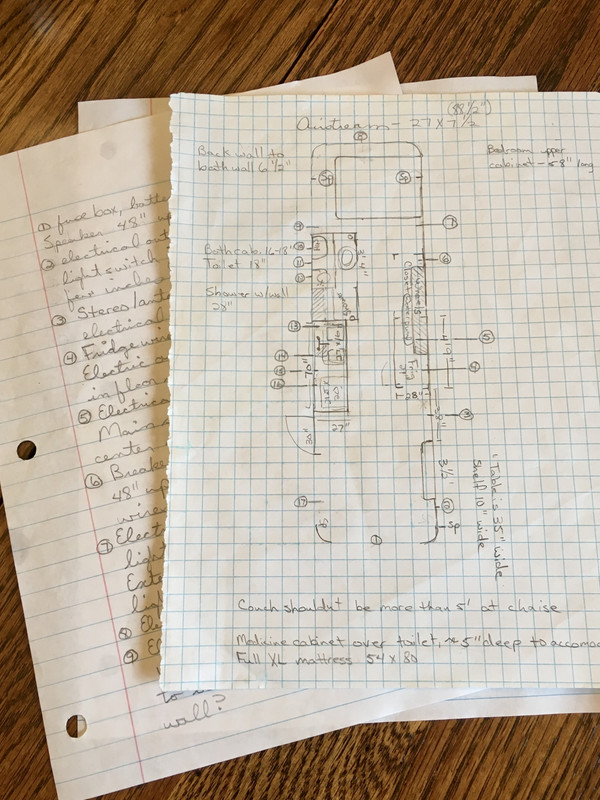 (88 1/2")
Airstream - 27 x 7 1/2
Back wall to
bath wall 6 1/2"
Bedroom upper
cabinet - 58" long
Sp
Sp
Bath cab. 16-18"
Toilet 18"
Shower w/wall
28"
Closet
Frig
28"
70"
27"
30"
3 1/2'
Sp
Sp
Table is 35" wide
Shelf 10" wide
Couch shouldn't be more than 5' at chaise
cabinet over toilet, ≈ 5" deep to accomo
Full XL mattress 54 x 80
① fuse box, batte
Speaker 48" up
② electrical out
light switch
few inches
③ Stereo/ant
electrical
④ Fridge wire
Electric o
in floor
⑤ Electrica
Main
center
⑥ Breake
48" up
wire
⑦ Elect
light
Exte
lig
⑧ Ele
⑨ El
to
wall?